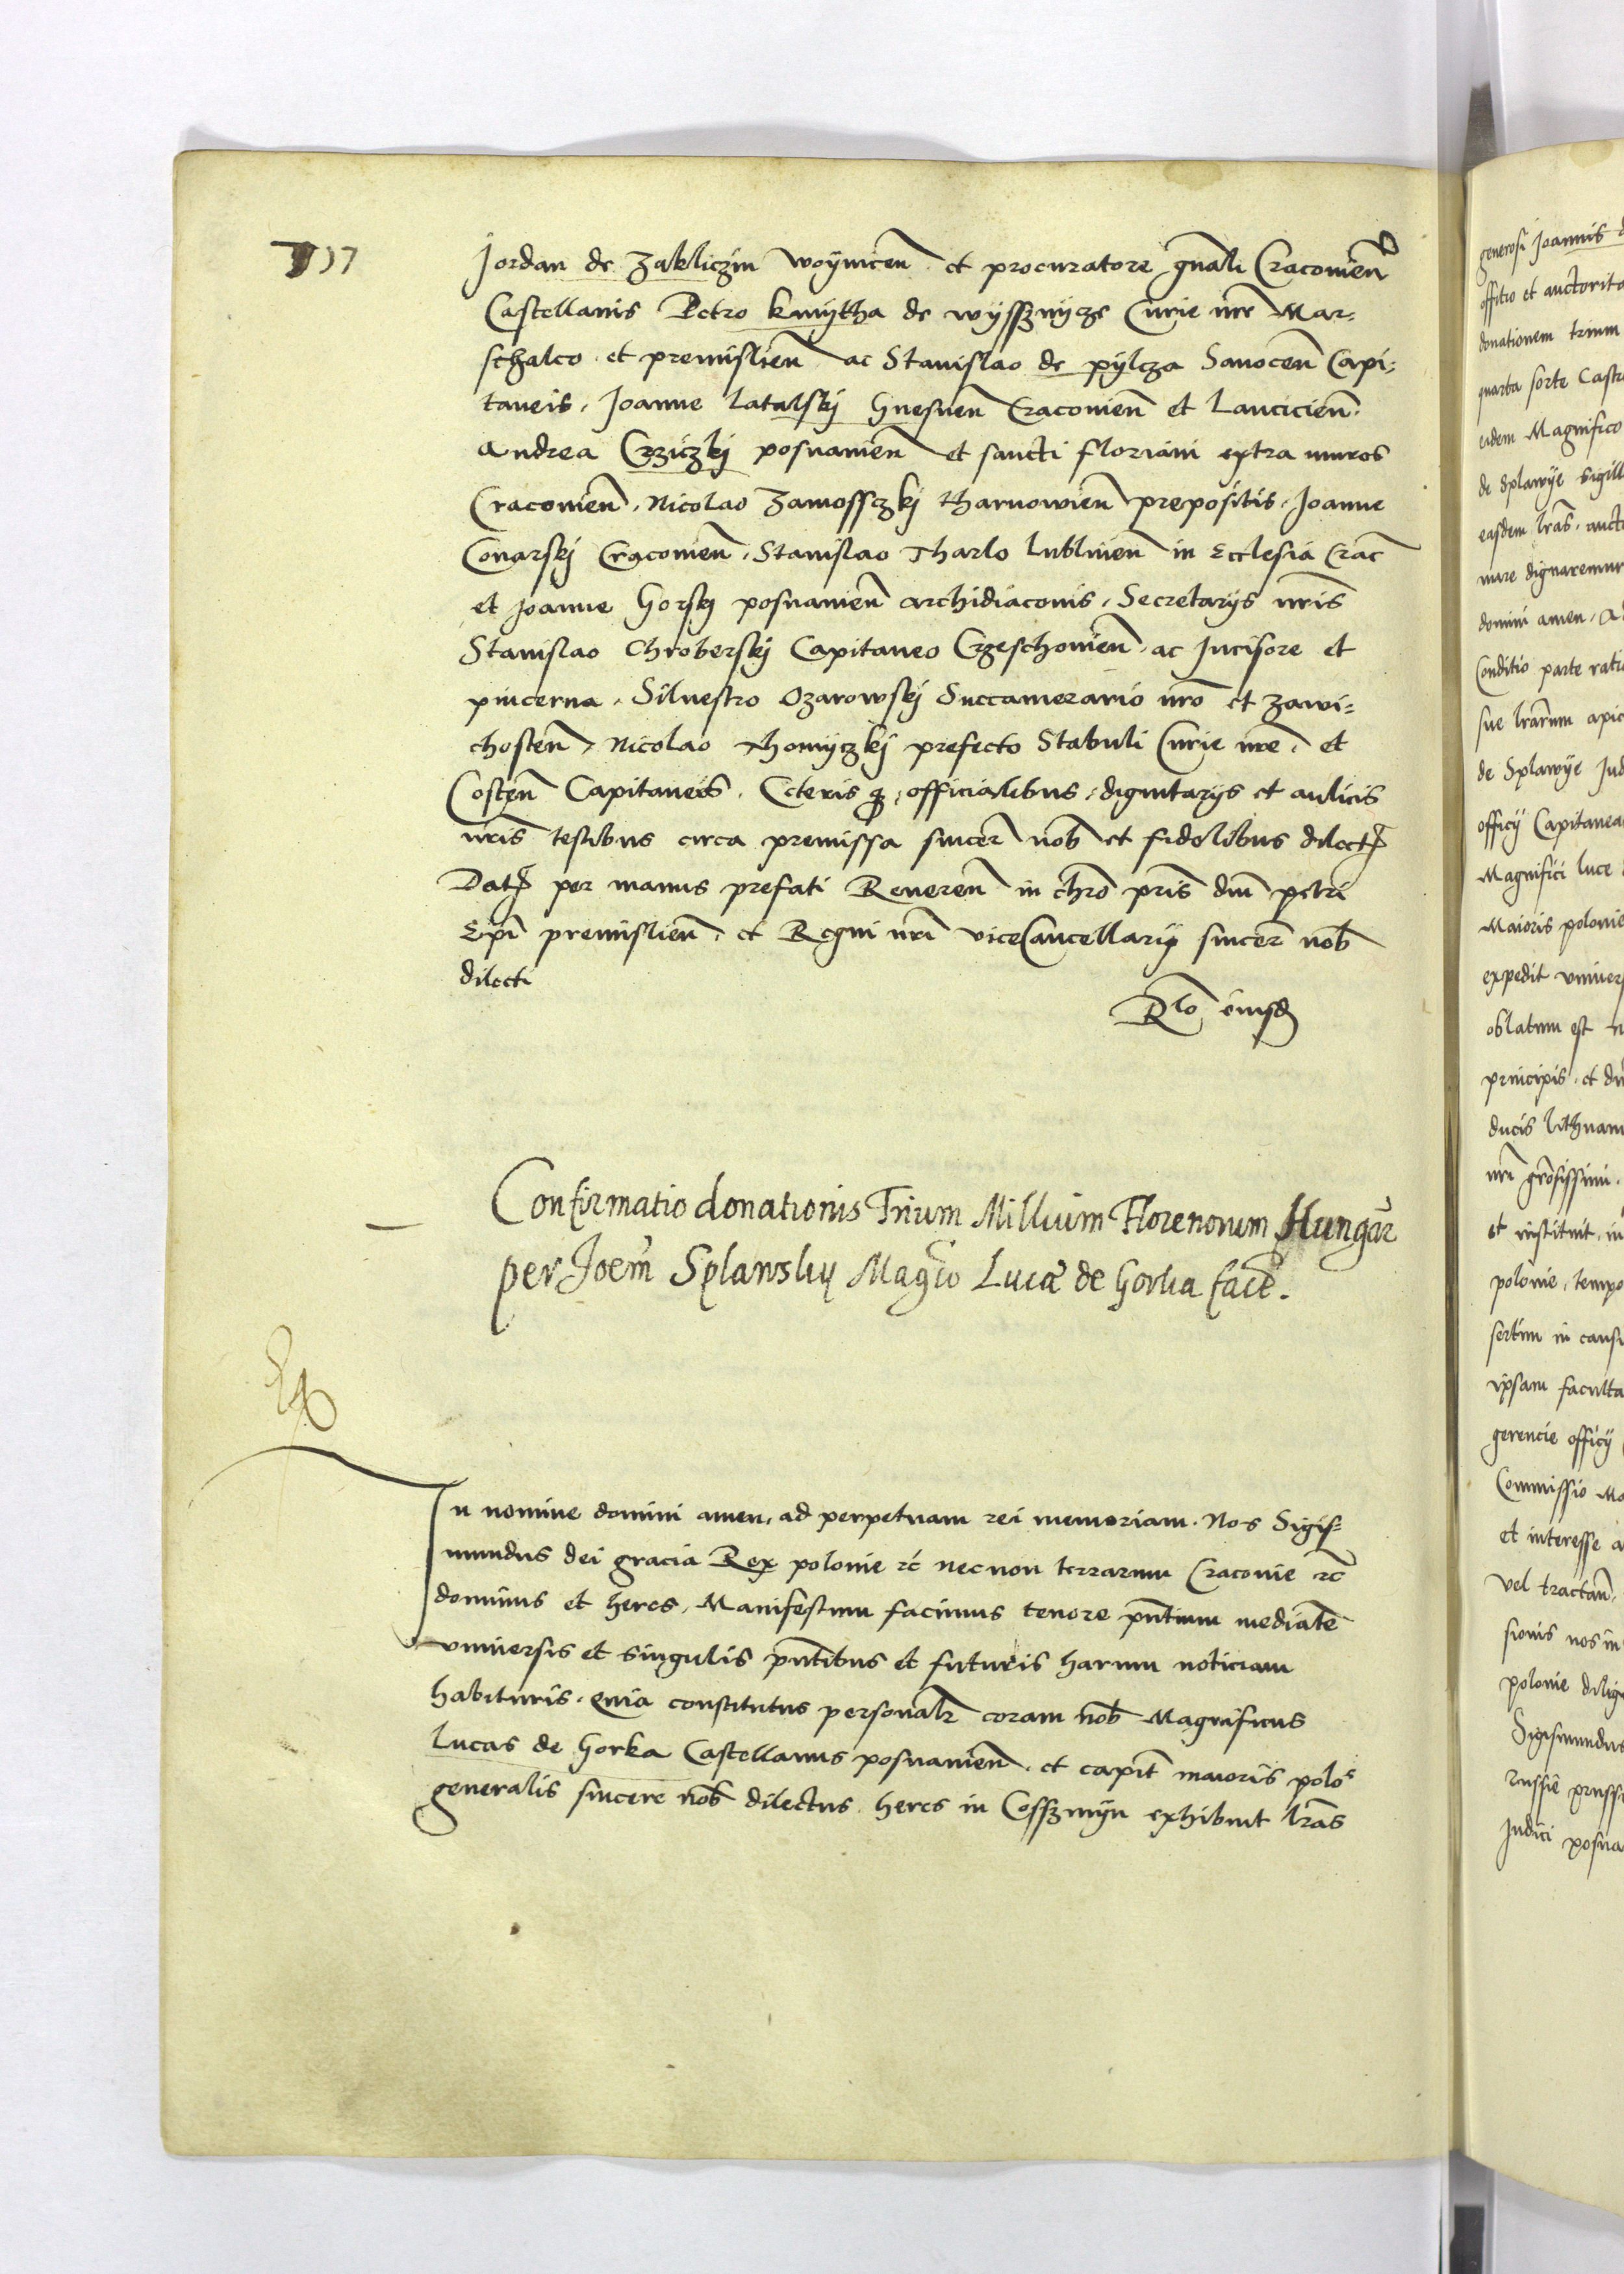 137
Jordan de Zakliczin woÿnicen̄ et procuratore gn̄ali Cracovien̄
Castellanis Petro kmÿtha de wÿssznÿcze Curie nr̄e Mar=
schalco et premislien̄ ac Stanislao de pÿlcza Sanocen̄ Capi=
taneis, Joanne Latalskÿ Gnesnen̄ Cracovien̄ et Lancicien̄.
Andrea Crziczkÿ posnanien̄ et sancti floriani extra muros
Cracovien̄, Nicolao Zamossczkÿ tharnowien̄ prepositis, Joanne
Conarskÿ Cracovien̄, Stanislao Tharlo lublinien̄ in Ecclesia Crac̄
et Joanne Gorskÿ posnanien̄ archidiaconis, Secretarÿs nr̄is
Stanislao Chroberskÿ Capitaneo Czeschovien̄, ac Incisore et
pincerna, Silvestro Ozarowskÿ Succamerario nr̄o et zawi=
chosten̄, Nicolao Thomÿczkÿ prefecto Stabuli Curie nr̄e, et
Costen̄ Capitaneis, Ceterisq; officialibus, dignitarÿs et aulicis
nr̄is testibus circa premissa sincer̄ nob̄ et fidelibus dilectꝭ
Datꝭ per manus prefati Reveren̄ in chr̄o pr̄is dn̄i petri
Ep̄i premislien̄, et Regni nr̄i viceCancellarÿ sincer̄ nob̄
dilecti
R̄lo eiusd̄
Confirmatio donationis Trium Millium Florenorum Hungar̄
per Joem̄ Splawskÿ Mag̅co Lucæ de Gorka fact̄.
In nomine domini amen, ad perpetuam rei memoriam. Nos Sigis=
mundus dei gracia Rex polonie zc̄ necnon terrarum Cracovie zc̄
dominus et heres, Manifestum facimus tenore pn̄tium median̄te
universis et singulis pn̄tibus et futuris harum noticiam
habituris, quia constitutus personalr̄ coram nob̄ Magnificus
Lucas de Gorka Castellanus posnanien̄, et capit̄ maioris polo͛
generalis sincere nob̄ dilectus, heres in Cosszmÿn exhibuit lr̄as
generosi Joannis
offitio et auctorita
donationem trium
quarta sorte Castr
eidem Magnifico
de Splawÿe sigill
easdem lr̄as, aucto
mare dignaremur
domini amen, A
Conditio parte rati
sue lr̄arum apic
de Splawÿe Jud
officÿ Capitanea
Magnifici luce
Maioris polonie
expedit univers
oblatum est n
principis, et du
ducis lithuani
nr̄i gr̄osissimi.
et instituit, in
polonie, tempo
sertim in causi
ipsam faculta
gerencie officÿ
Commissio Ma
et interesse a
vel tractan̄,
sionis nos in
polonie dilig
Sigismundus
russie prussi
Judici posna